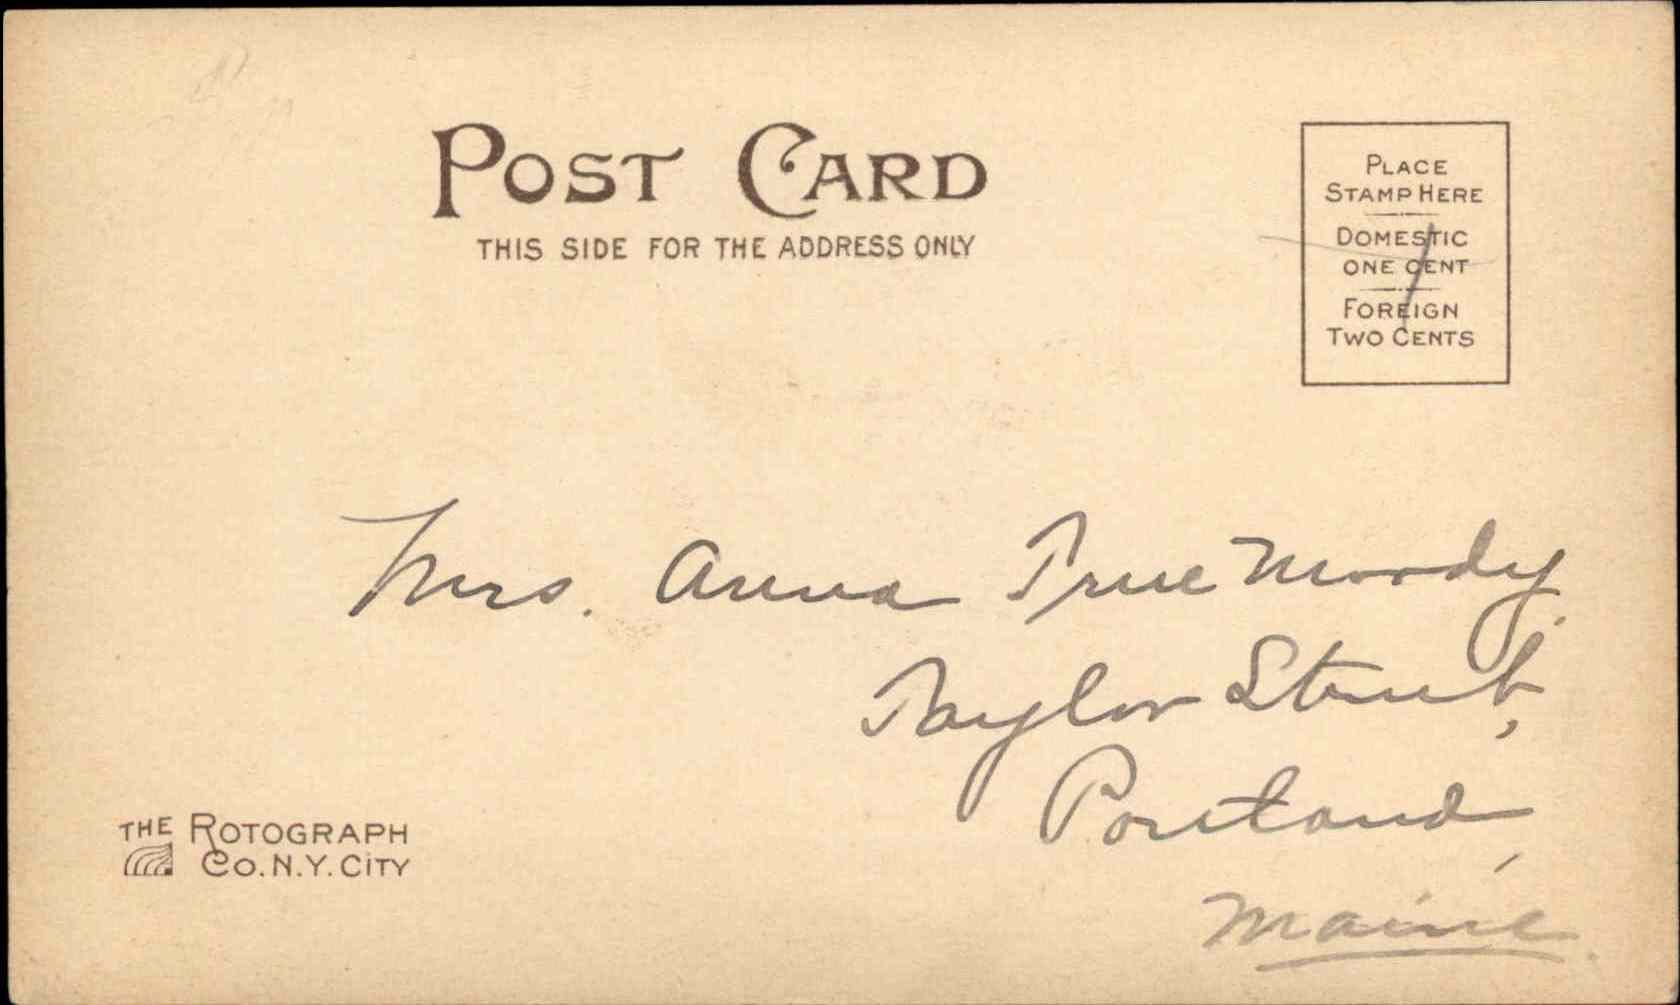 POST CARD
THIS SIDE FOR THE ADDRESS ONLY
PLACE
STAMP HERE
DOMESTIC
ONE CENT
FOREIGN
TWO CENTS
Mrs. Anna True Moody,
Taylor Street,
Portland,
Maine.
THE ROTOGRAPH
CO. N.Y. CITY